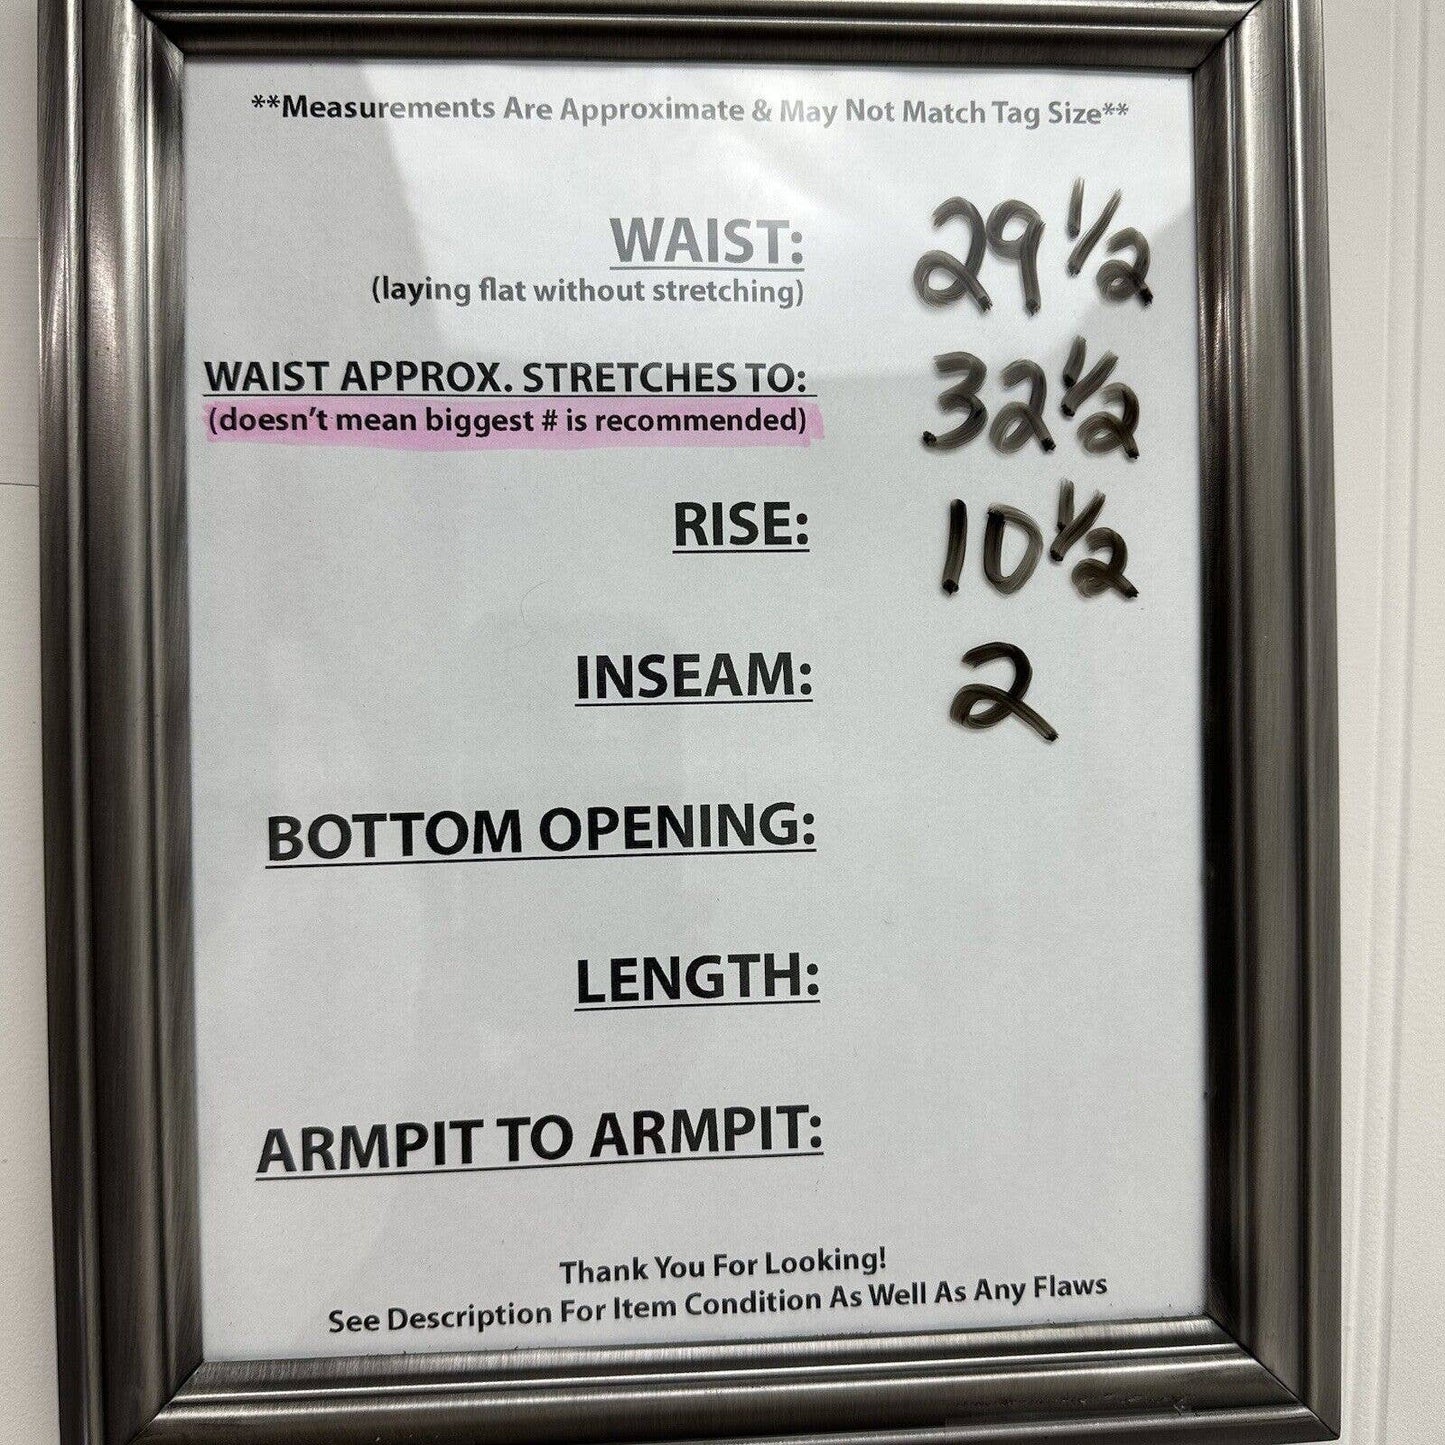 **Measurements Are Approximate & May Not Match Tag Size**
WAIST: 29 1/2
(laying flat without stretching)
WAIST APPROX. STRETCHES TO: 32 1/2
(doesn't mean biggest # is recommended)
RISE: 10 1/2
INSEAM: 2
BOTTOM OPENING:
LENGTH:
ARMPIT TO ARMPIT:
Thank You For Looking!
See Description For Item Condition As Well As Any Flaws